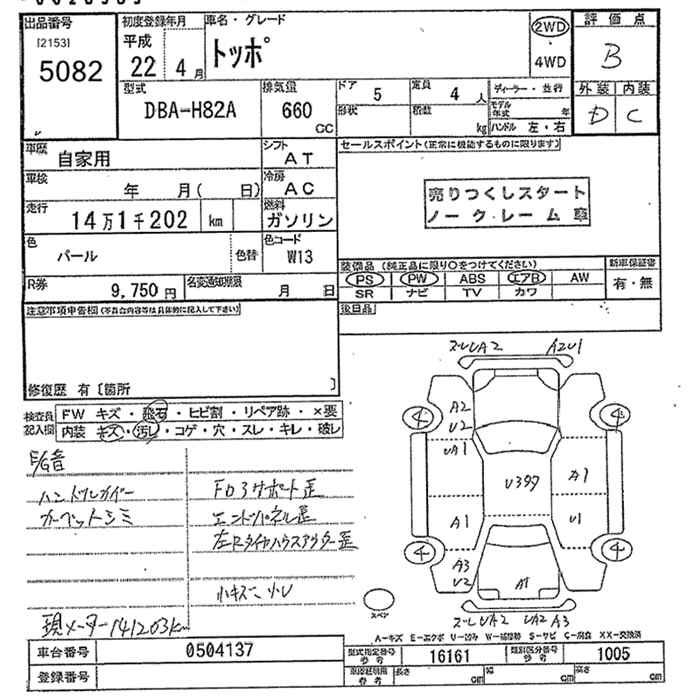 出品番号
[2153]
5082
初度登録年月
平成
22 4月
車名・グレード
トッポ
2WD
・
4WD
評価点
B
外装 内装
D C
型式
DBA-H82A
排気量
660
CC
ドア
5
形状
定員
4 人
積数
kg
ディーラー・並行
モデル年式 年
ハンドル 左・右
車歴
自家用
シフト
AT
車検
年 月( 日)
冷房
AC
走行
14万1千202 km
燃料
ガソリン
色
パール
色替
色コード
W13
R券
9,750円
名変通知期限
月 日
セールスポイント(正常に機能するものに限ります)
売りつくしスタート
ノークレーム車
装備品(純正品に限り○をつけてください)
PS PW ABS エアB AW
SR ナビ TV カワ
新車保証書
有・無
後日品
注意事項申告欄(写真台内容等は具体的に記入して下さい)
修復歴 有〔箇所 〕
検査員記入欄
FW キズ・飛石・ヒビ割・リペア跡・×要
内装 キズ・汚し・コゲ・穴・スレ・キレ・破レ
E/G音
ハンドルカバー
カーペットシミ
FD3サポート歪
エンドパネル歪
左Rタイヤハウスアウター歪
小キズ 小U
現メーター141203km
ズレUA2 A2U1
A2
U2
UA1
U397
A1
A1
U1
A3
U2
A1
4
4
4
4
スペア
ズレUA2 UA2 A3
A-キズ E-エクボ U-凹み W-補修跡 S-サビ C-腐食 XX-交換済
車台番号
0504137
登録番号
型式指定番号
参考
16161
類別区分番号
参考
1005
車検証明用
参考
長さ cm
幅 cm
高さ cm